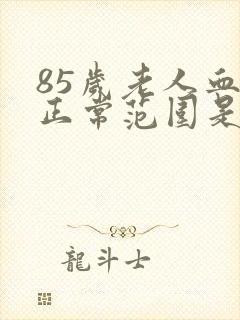 85歲老人血
正常范圍是
龍斗士